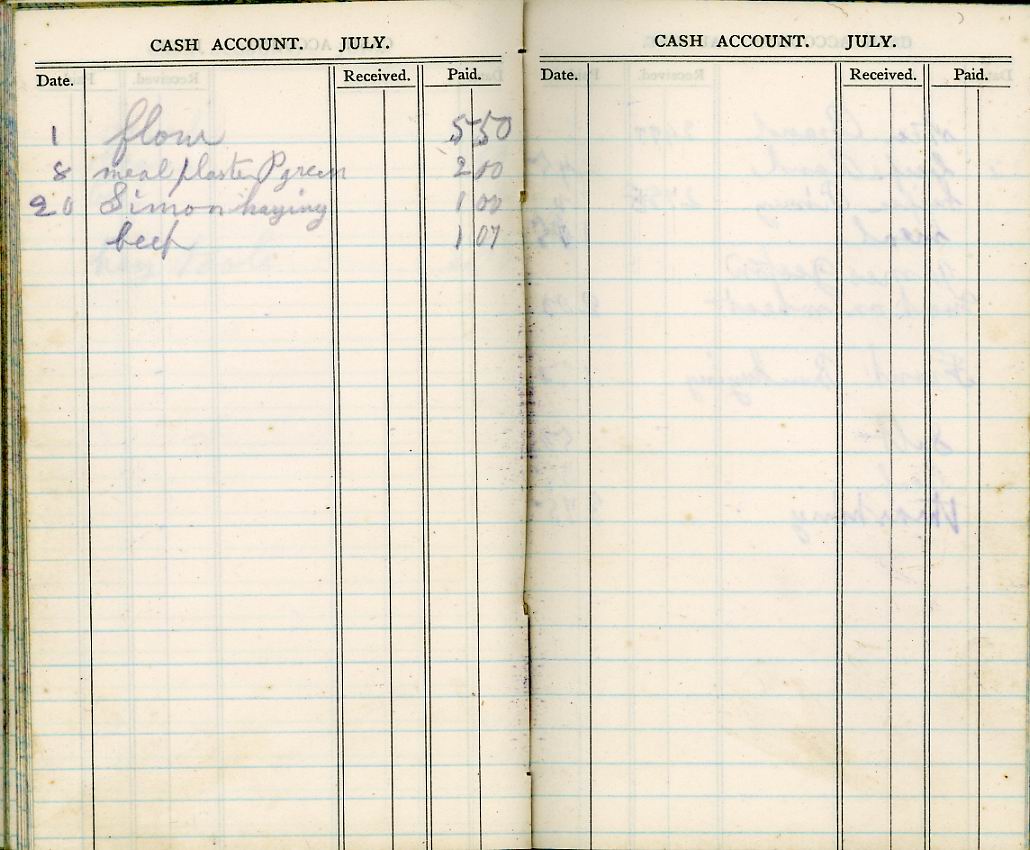 CASH ACCOUNT. JULY.
Date. Received. Paid.
1 flour 5 50
8 meal plaster P green 2 00
20 Simon haying 1 00
beef 1 07
CASH ACCOUNT. JULY.
Date. Received. Paid.